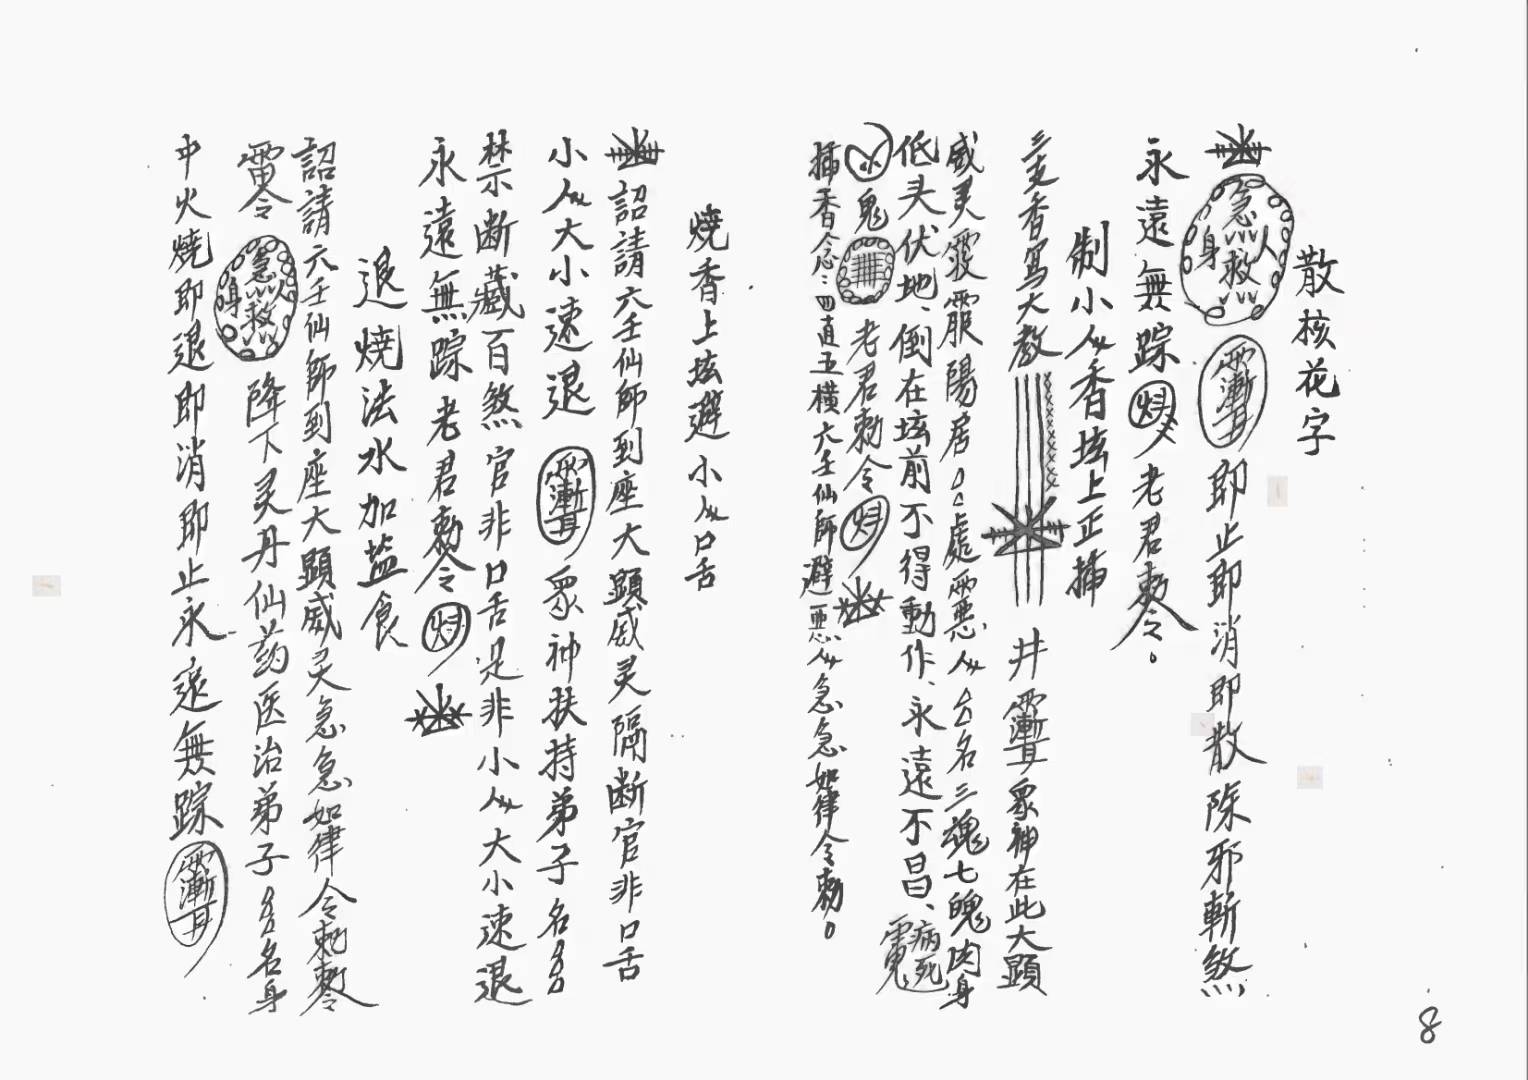 散核花字
急救人身 即止即消即散除邪斬煞
永遠無踪 老君敕令。
制小人香垓上正插
三支香寫大教 井 眾神在此大顯
威灵 陽居 處 惡人 名三魂七魄肉身
低头伏地、倒在垓前不得動作、永遠不昌、病死
鬼 老君勅令
插香念: 四直五横六壬仙師避惡人急急如律令勅。
燒香上垓避小人口舌
詔請六壬仙師到座大顯威灵隔断官非口舌
小人大小速退 眾神扶持弟子名
禁断藏百煞官非口舌是非小人大小速退
永遠無踪老君勅令
退燒法水加盐食
詔請六壬仙師到座大顯威灵急急如律令勅
急救人身 降下灵丹仙药医治弟子 名身
中火燒即退即消即止永远無踪
8